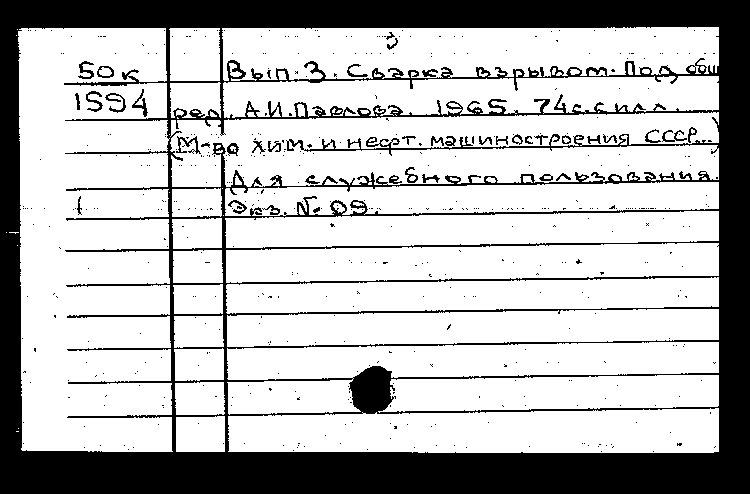 50к Вып. 3. Сварка взрывом. Под общ
1594 ред. А.И.Павлова. 1965. 74с. с илл.
(М-во хим. и нефт. машиностроения СССР...)
Для служебного пользования.
1 Экз. № 09.